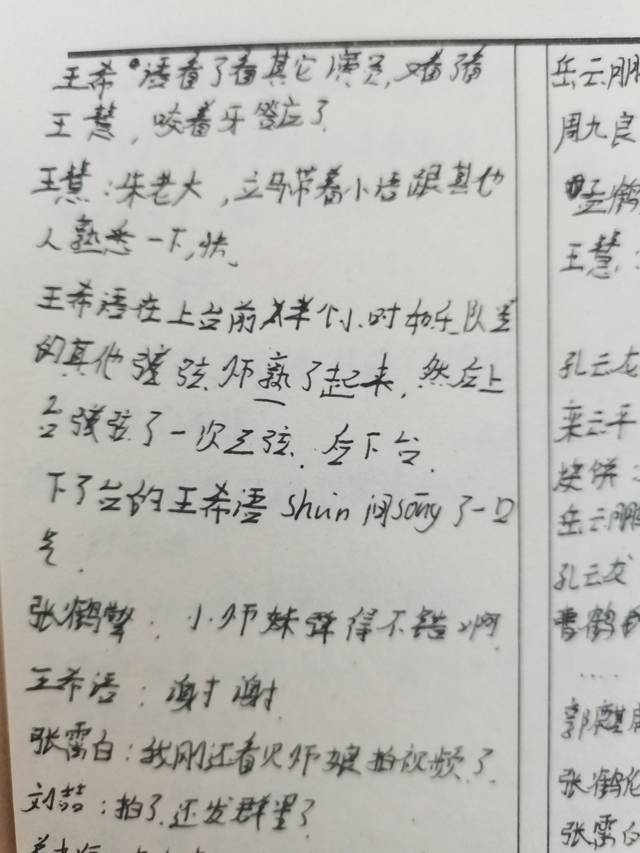 王希语看了看其它演员,又看了看
王慧,咬着牙答应了
王慧:朱老大,立马带着小语跟其他
人熟悉一下,快、
王希语在上台前半个小时和乐队里
的其他弹弦师熟了起来,然后上
台弹弦了一次三弦.后下台.
下了台的王希语shùn间sōng了一口
气.
张鹤擎:小师妹弹得不错啊
王希语:谢谢
张霄白:我刚还看见师娘拍视频了.
刘喆:拍了.还发群里了
岳云鹏
周九良
孟鹤
王慧:
孔云龙
栾云平
烧饼:
岳云鹏
孔云龙
曹鹤
....
郭麒麟
张鹤伦
张霄白